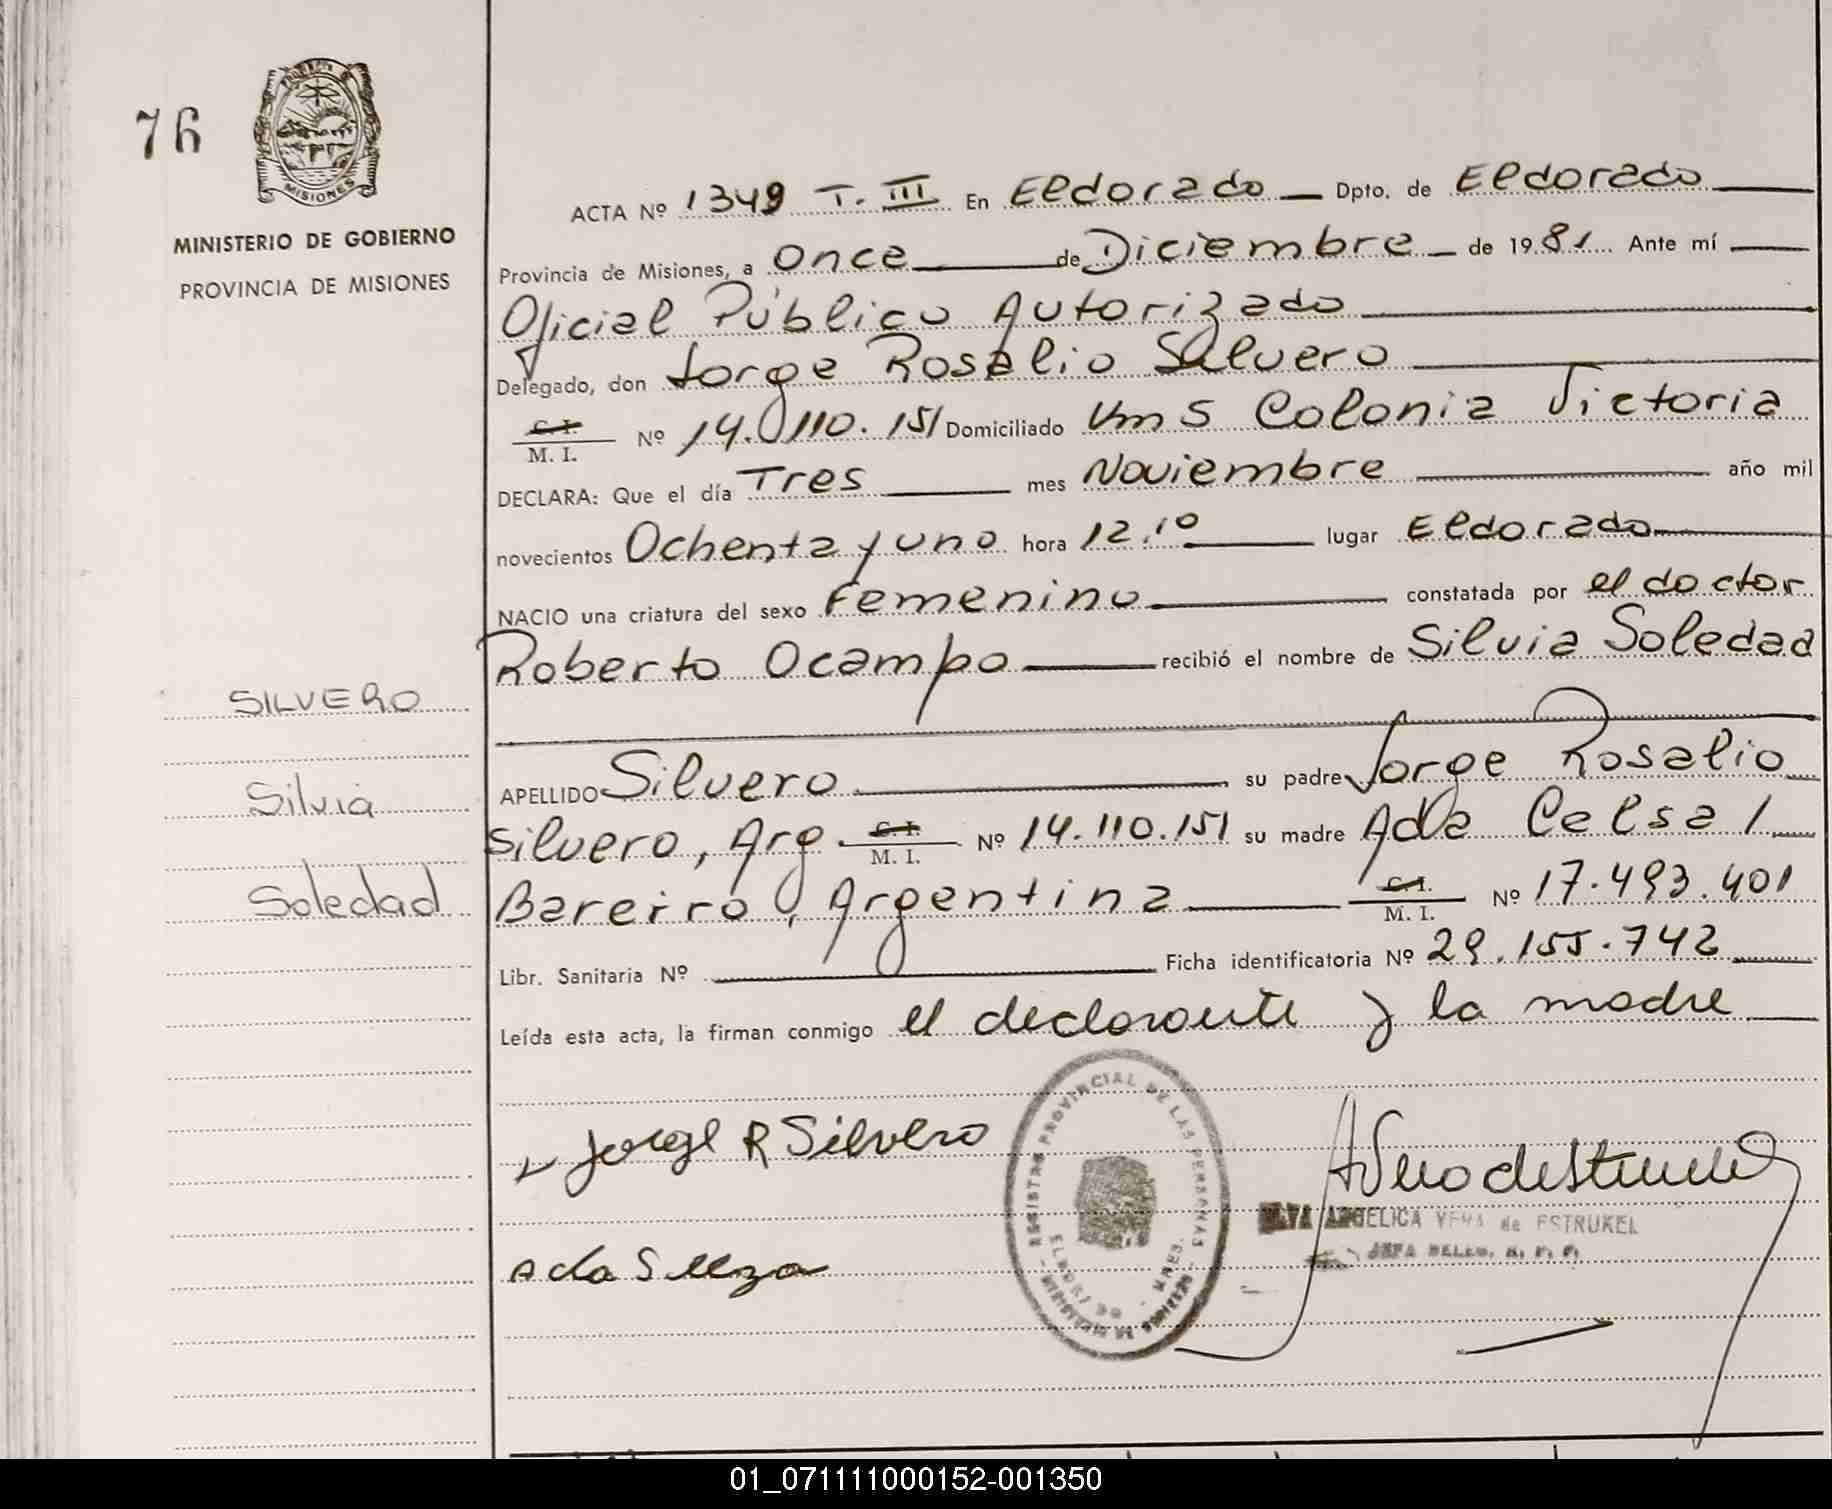 76
MISIONES
MINISTERIO DE GOBIERNO
PROVINCIA DE MISIONES
SILVERO
Silvia
Soledad
ACTA Nº 1349 T. III En Eldorado Dpto. de Eldorado
Provincia de Misiones, a Once de Diciembre de 1981 Ante mí
Oficial Público Autorizado
Delegado, don Jorge Rosalio Silvero
C. I. M. I. Nº 14.110.151 Domiciliado Km 5 Colonia Victoria
DECLARA: Que el día Tres mes Noviembre año mil
novecientos Ochenta y uno hora 12.10 lugar Eldorado
NACIO una criatura del sexo Femenino constatada por el doctor
Roberto Ocampo recibió el nombre de Silvia Soledad
APELLIDO Silvero su padre Jorge Rosalio
Silvero, Arg. C. I. M. I. Nº 14.110.151 su madre Ada Celsa
Bareiro, Argentina C. I. M. I. Nº 17.493.401
Libr. Sanitaria Nº Ficha identificatoria Nº 29.155.742
Leída esta acta, la firman conmigo el declarante y la madre
Jorge R Silvero
REGISTRO PROVINCIAL DE LAS PERSONAS
ANGELICA VERA de ESTRUKEL
JEFA
Ada
01_071111000152-001350